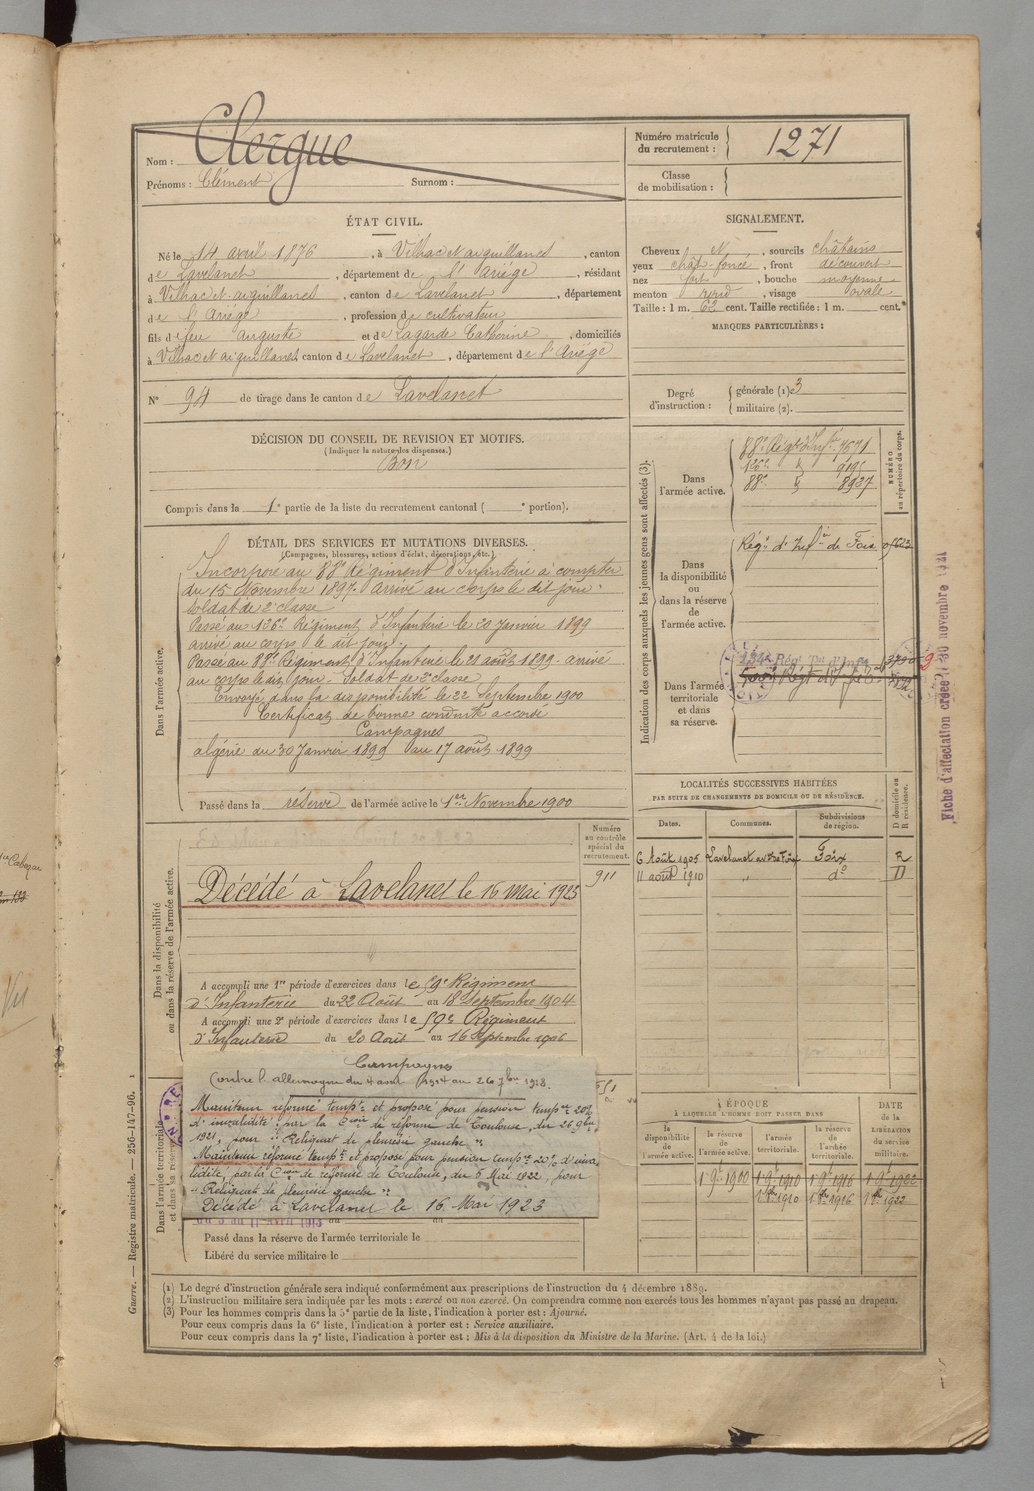 Nom : Clergue
Prénoms : Clément Surnom :
Numéro matricule du recrutement : 1271
Classe de mobilisation :
ÉTAT CIVIL.
Né le 14 avril 1876, à Vilhac et aiguillanes, canton
de Lavelanet, département de l'Ariège, résidant
à Vilhac et aiguillanes, canton de Lavelanet, département
de l'Ariège, profession de cultivateur
fils de feu auguste et de Lagarde Catherine, domiciliés
à Vilhac et aiguillanes, canton de Lavelanet, département de l'Ariège
N° 94 de tirage dans le canton de Lavelanet
SIGNALEMENT.
Cheveux N, sourcils châtains
yeux chât-foncé, front découvert
nez fort, bouche moyenne
menton rond, visage ovale
Taille : 1 m. 62 cent. Taille rectifiée : 1 m. cent.
MARQUES PARTICULIÈRES :
Degré d'instruction :
générale (1) 3
militaire (2).
DÉCISION DU CONSEIL DE REVISION ET MOTIFS.
(Indiquer la nature des dispenses.)
Bon
Compris dans la 1e partie de la liste du recrutement cantonal ( e portion).
DÉTAIL DES SERVICES ET MUTATIONS DIVERSES.
(Campagnes, blessures, actions d'éclat, décorations, etc.)
Dans l'armée active.
Incorporé au 88e Régiment d'Infanterie à compter
du 15 Novembre 1897. Arrivé au corps le dit jour.
Soldat de 2e classe
Passé au 126e Régiment d'Infanterie le 20 Janvier 1899
arrivé au corps le dit jour.
Passé au 88e Régiment d'Infanterie le 21 août 1899. arrivé
au corps le dit jour. Soldat de 2e classe
Envoyé dans la disponibilité le 22 Septembre 1900
Certificat de bonne conduite accordé
Campagnes
algérie du 30 Janvier 1899 au 17 août 1899
Passé dans la réserve de l'armée active le 1er Novembre 1900
Indication des corps auxquels les jeunes gens sont affectés (3).
NUMÉRO au répertoire du corps.
Dans l'armée active.
88e Régt d'Infie 7671
126e
88e 8937
Dans la disponibilité ou dans la réserve de l'armée active.
Régt d'Infie de Foix
Dans l'armée territoriale et dans sa réserve.
134e Régt Tal d'Infie
Fiche d'affectation créée le 30 novembre 1921
LOCALITÉS SUCCESSIVES HABITÉES
PAR SUITE DE CHANGEMENTS DE DOMICILE OU DE RÉSIDENCE.
Dates. Communes. Subdivisions de région. D domicile ou R résidence.
6 Août 1905 Lavelanet Foix R
11 août 1910 " do D
Dans la disponibilité ou dans la réserve de l'armée active.
Numéro au contrôle spécial du recrutement.
911
Décédé à Lavelanet le 16 mai 1923
A accompli une 1re période d'exercices dans le 59e Régiment
d'Infanterie du 22 Août au 18 Septembre 1904
A accompli une 2e période d'exercices dans le 59e Régiment
d'Infanterie du 20 Août au 16 Septembre 1906
Dans l'armée territoriale et dans sa réserve
Campagne
Contre l'allemagne du 4 août 1914 au 26 7bre 1918.
Maintenu réformé tempre et proposé pour pension tempre 20%
d'invalidité par la Con de réforme de Toulouse, du 26 9bre
1921, pour "Reliquat de pleurésie gauche"
Maintenu réformé tempre et proposé pour pension tempre 20% d'inva
lidité, par la Con de réforme de Toulouse, du 5 Mai 1922, pour
"Reliquat de pleurésie gauche"
Décédé à Lavelanet le 16 Mai 1923
Passé dans la réserve de l'armée territoriale le
Libéré du service militaire le
ÉPOQUE
À LAQUELLE L'HOMME DOIT PASSER DANS
la disponibilité de l'armée active. la réserve de l'armée active. l'armée territoriale. la réserve de l'armée territoriale. DATE de la LIBÉRATION du service militaire.
1 9bre 1900 1 9bre 1910 1 9bre 1916 1 9bre 1922
1 8bre 1910 1 8bre 1916 1 8bre 1922
(1) Le degré d'instruction générale sera indiqué conformément aux prescriptions de l'instruction du 4 décembre 1889.
(2) L'instruction militaire sera indiquée par les mots : exercé ou non exercé. On comprendra comme non exercés tous les hommes n'ayant pas passé au drapeau.
(3) Pour les hommes compris dans la 5e partie de la liste, l'indication à porter est : Ajourné.
Pour ceux compris dans la 6e liste, l'indication à porter est : Service auxiliaire.
Pour ceux compris dans la 7e liste, l'indication à porter est : Mis à la disposition du Ministre de la Marine. (Art. 4 de la loi.)
Guerre. — Registre matricule. — 256-147-96.